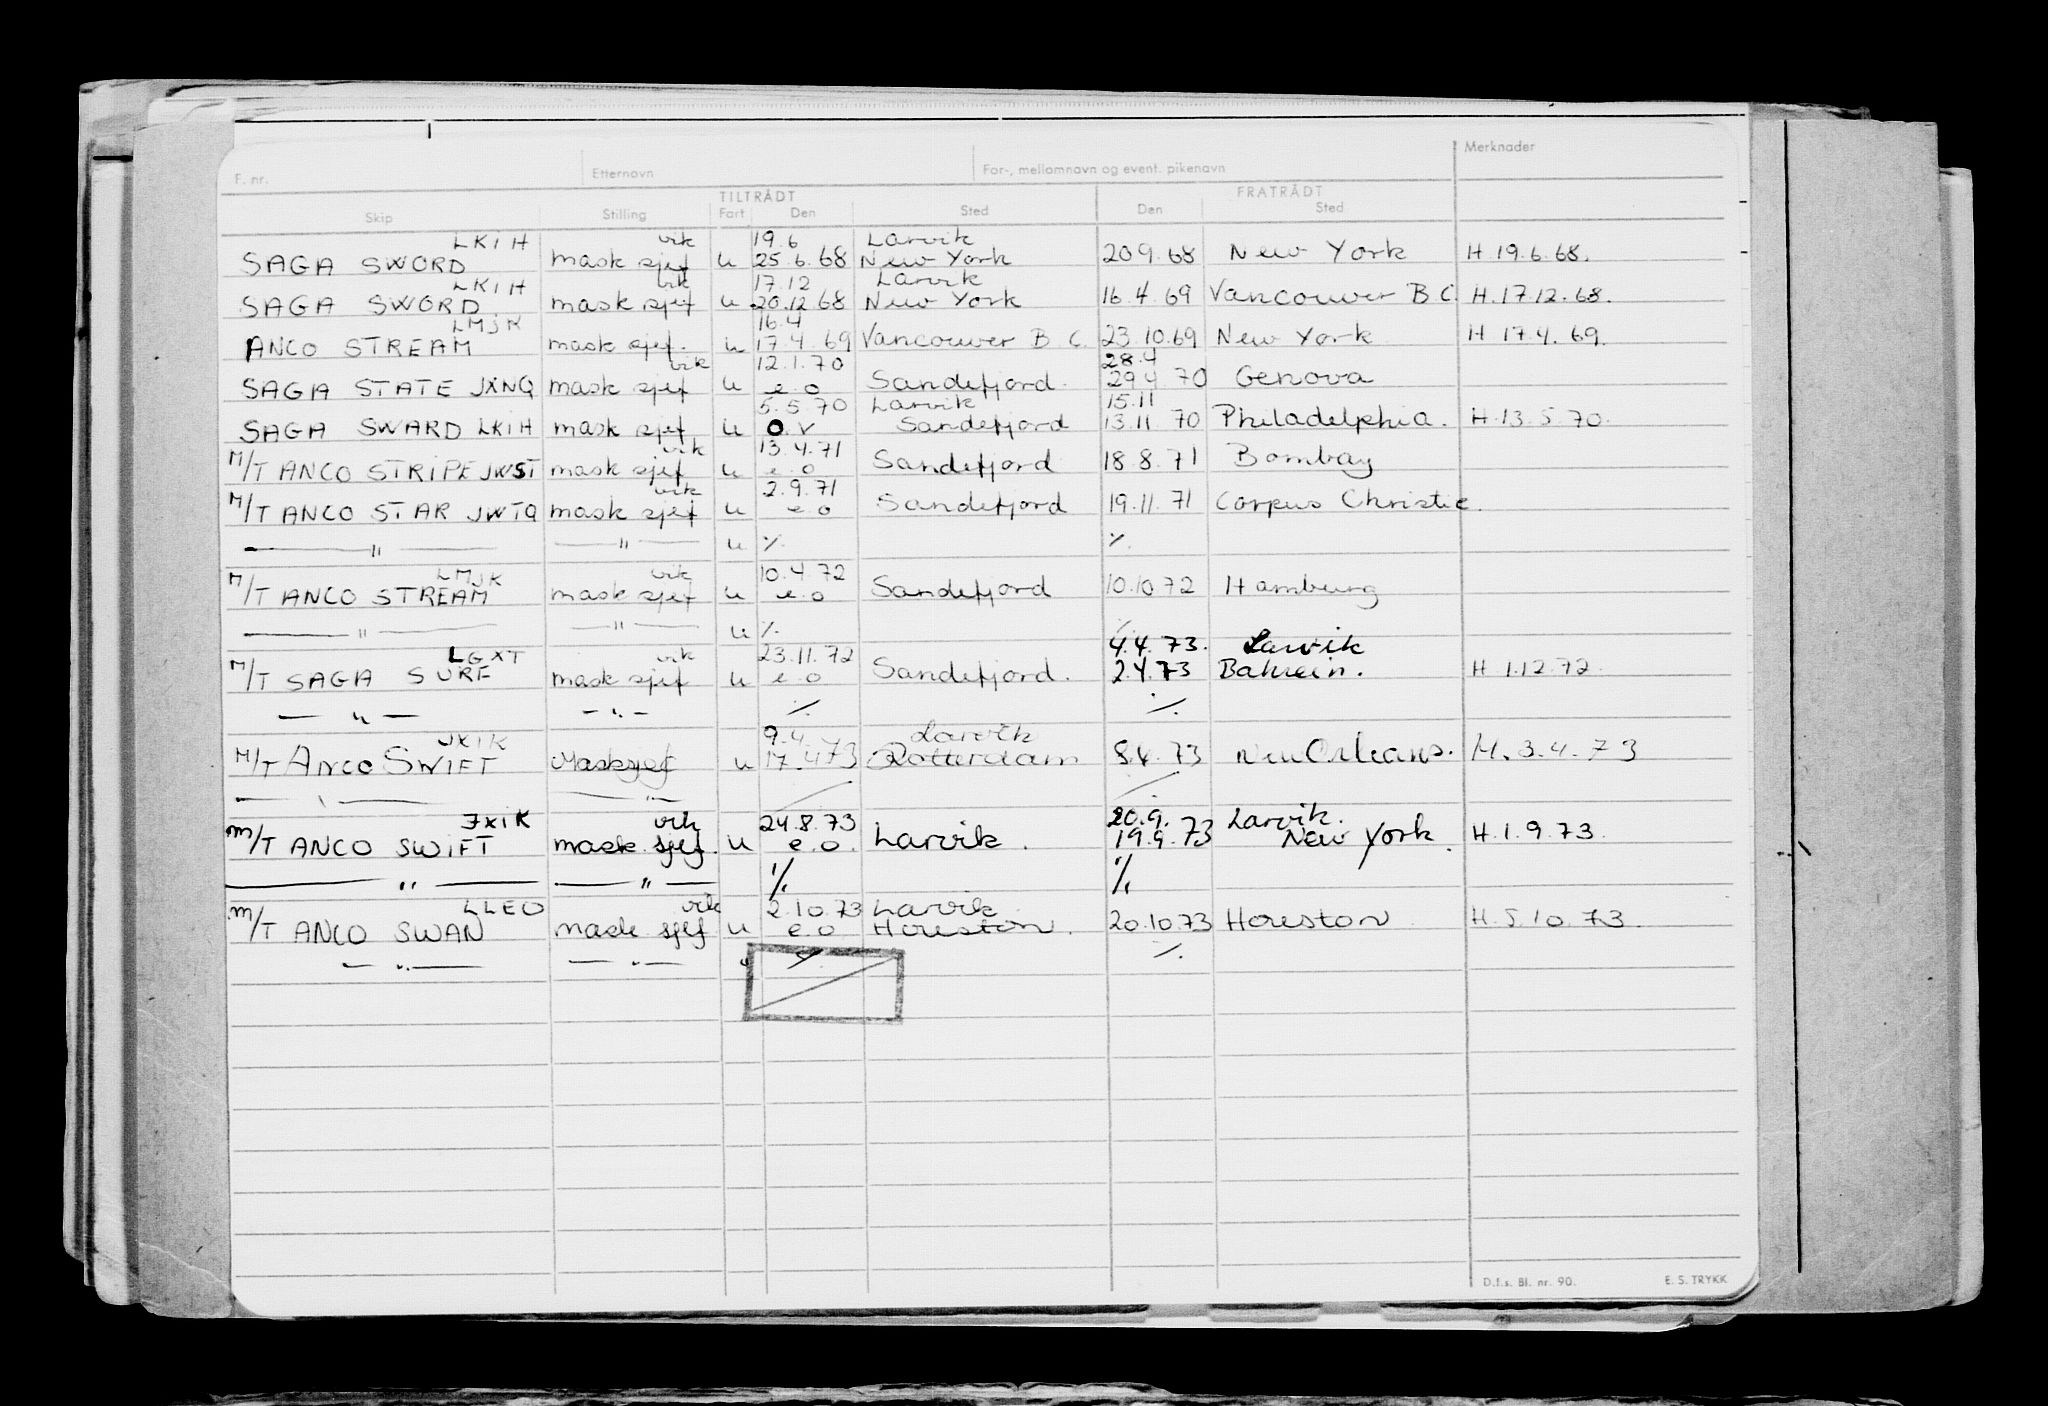 Merknader
F. nr. Etternavn For-, mellomnavn og event. pikenavn
TILTRÅDT FRATRÅDT
Skip Stilling Fart Den Sted Den Sted
LKIH vik 19.6 Larvik
SAGA SWORD mask sjef u 25.6.68 New York 20 9.68 New York H 19.6.68.
LKIH vik 17.12 Larvik
SAGA SWORD mask sjef u 20.12 68 New York 16.4.69 Vancouver B C. H.17.12.68.
LMJK 16.4
ANCO STREAM mask sjef. u 17.4.69 Vancouver B C. 23.10.69 New York H 17.4.69.
vik 12.1.70 28.4
SAGA STATE JXNQ mask sjef u e.o Sandefjord. 29.4.70 Genova
5.5.70 Larvik 15.11
SAGA SWARD LKIH mask sjef u O.V Sandefjord 13.11.70 Philadelphia. H.13.5.70.
vik 13.4.71
M/T ANCO STRIPE JWST mask sjef u e.o Sandefjord 18.8.71 Bombay
vik 2.9.71
M/T ANCO STAR JWTQ mask sjef u e.o Sandefjord 19.11.71 Corpus Christie.
— " — — " — u ⁒ ⁒
LMJK vik 10.4.72
M/T ANCO STREAM mask sjef u e.o Sandefjord 10.10.72 Hamburg
— " — — " — u ⁒ ⁒
4.4.73. Larvik
LGXT vik 23.11.72
M/T SAGA SURF mask sjef u e.o Sandefjord. 2.4.73 Bahrein. H 1.12.72.
— " — — " — ⁒ ⁒
JXIK 9.4. Larvik
M/T ANCO SWIFT Masksjef u 17.4.73 Rotterdam 8.4.73 New Orleans. H.3.4.73
— " — — " — ⁒ ⁒
JXIK vik 24.8.73 20.9. Larvik.
M/T ANCO SWIFT mask sjef. u e.o. Larvik. 19.9.73 New York. H.1.9.73.
— " — — " — ⁒ ⁒
LLEO vik 2.10.73 Larvik
M/T ANCO SWAN mask sjef u e.o Houston. 20.10.73 Houston H.5.10.73.
— " — — " — u ⁒ ⁒
D.f.s. Bl. nr. 90. E. S. TRYKK